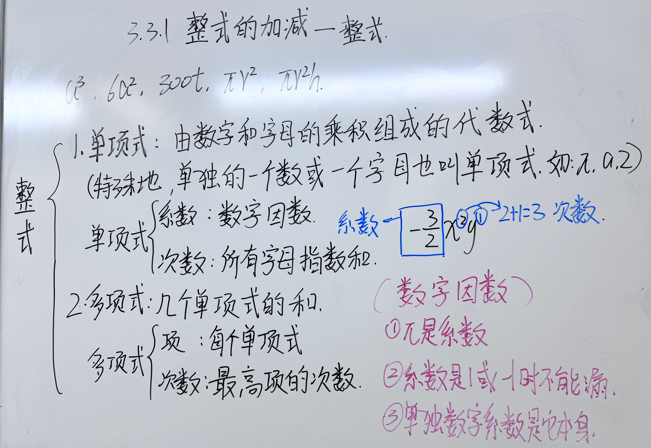 3.3.1 整式的加减一整式.
a³, 6a², 300t, πr², πr²h.
整式
1.单项式: 由数字和字母的乘积组成的代数式.
(特殊地,单独的一个数或一个字母也叫单项式.如:π,a,2)
单项式
系数:数字因数.
次数:所有字母指数和.
系数 -3/2 x²y ① 2+1=3 次数.
2.多项式:几个单项式的和.
多项式
项:每个单项式
次数:最高项的次数.
(数字因数)
①π是系数
②系数是1或-1时不能漏.
③单独数字系数是它本身.